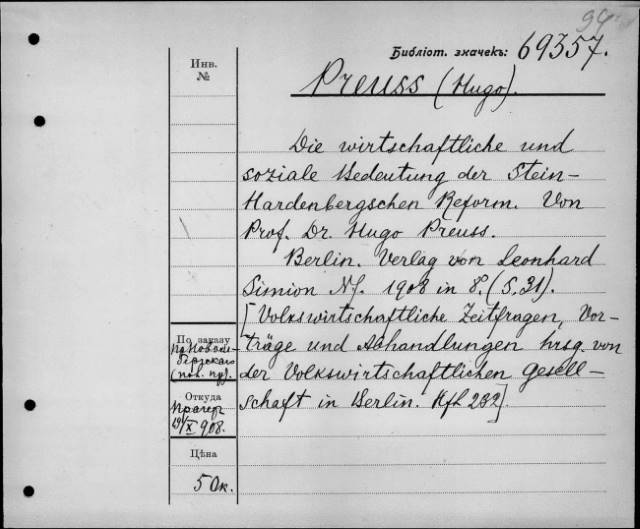 94
Библіот. значекъ: 69357.
Инв.
№
Preuss (Hugo).
Die wirtschaftliche und
soziale Bedeutung der Stein-
Hardenbergschen Reform. Von
Prof. Dr. Hugo Preuss.
Berlin. Verlag von Leonhard
Simion Nf. 1908 in 8°. (S. 31).
[Volkswirtschaftliche Zeitfragen, Vor-
träge und Abhandlungen hrsg. von
der Volkswirtschaftlichen Gesell-
schaft in Berlin. Hft 232].
По заказу
Откуда
X 908.
Цѣна
50к.